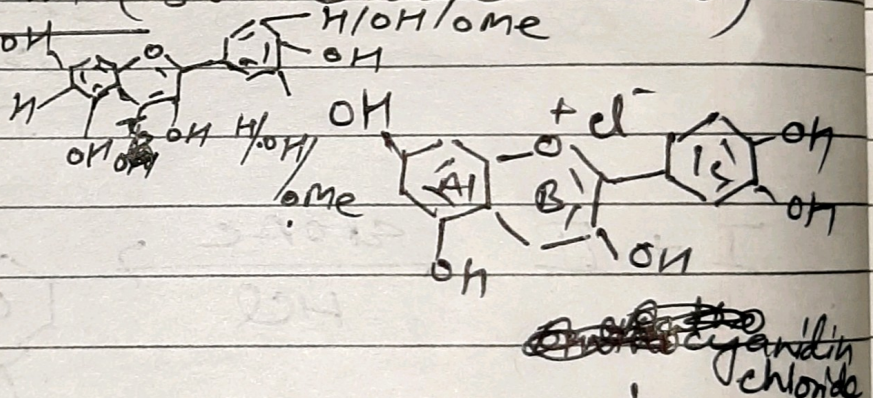 H/OH/OMe
OH
O
OH
H
OH
OH
H/OH/
OMe
OH
+ Cl-
O
OH
A
B
OH
OH
OH
cyanidin
chloride